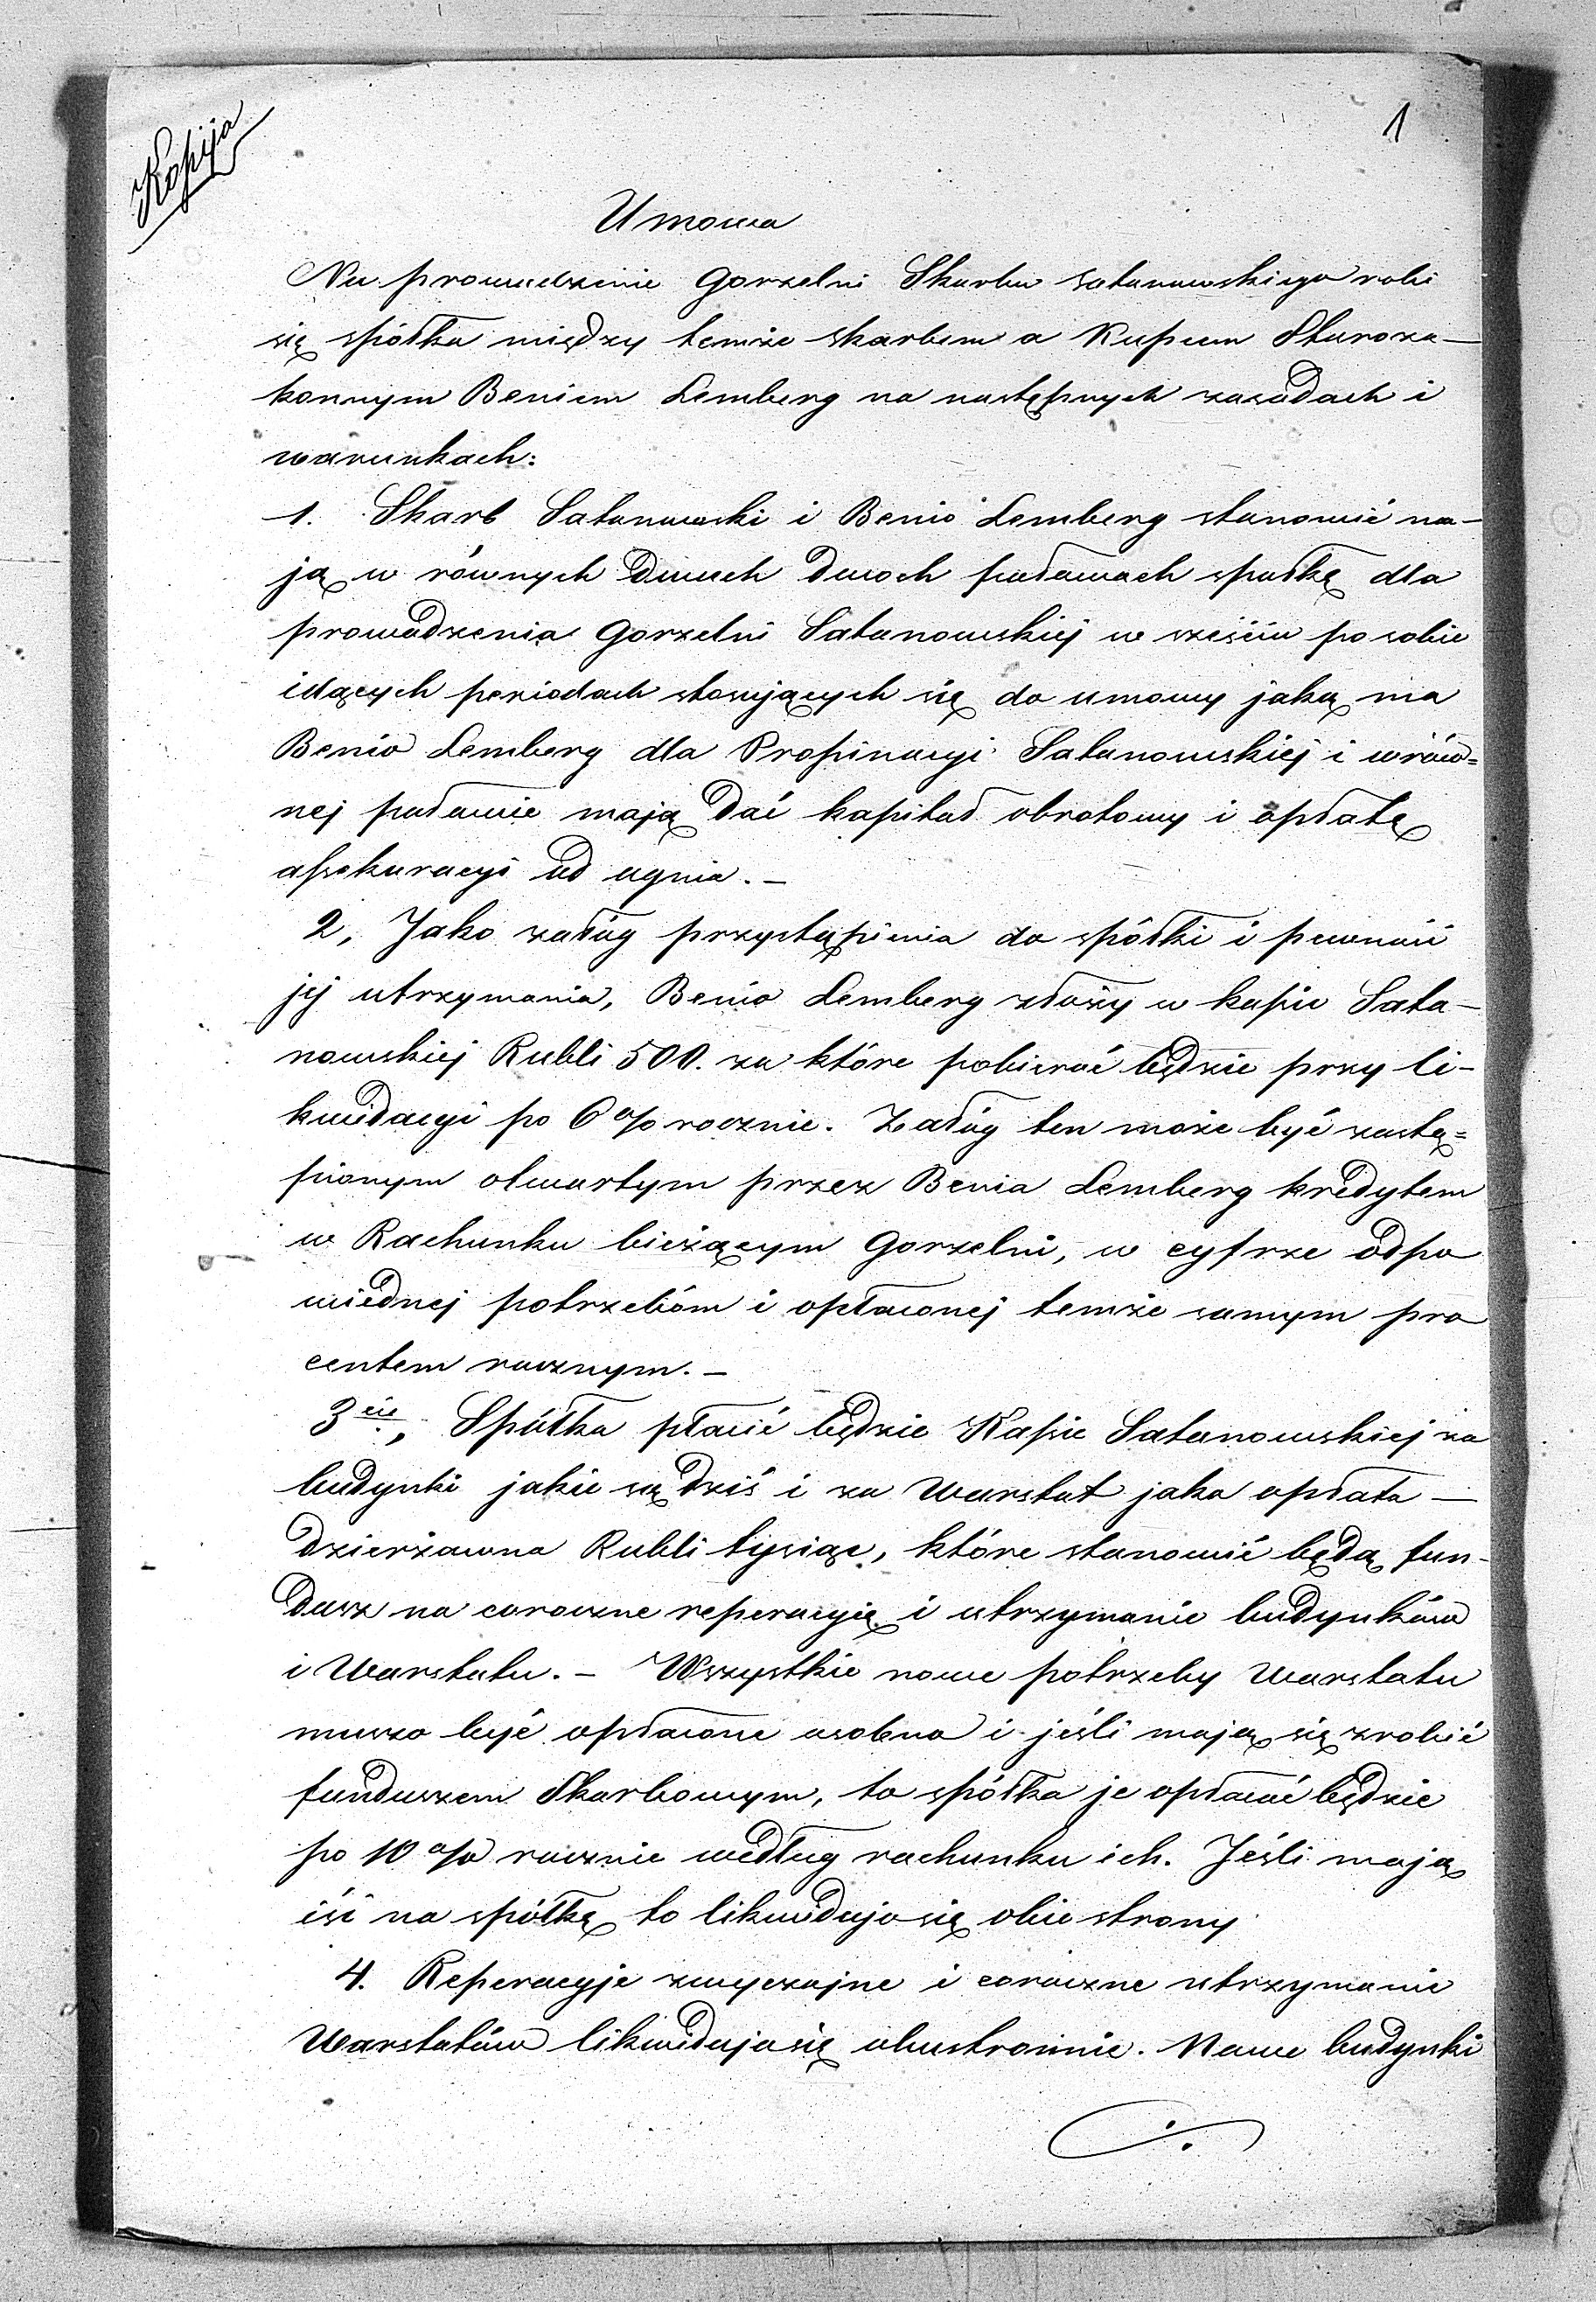 Kopija
1
Umowa
Na prowadzenie Gorzelni Skarbu Satanowskiego robi
się spółka między temże skarbem a Kupcem Staroza-
konnym Beniem Lemberg na następnych zasadach i
warunkach:
1. Skarb Satanowski i Benio Lemberg stanowić ma-
ją w równych dwuch dwoch połowach spółkę dla
prowadzenia Gorzelni Satanowskiej w sześciu po sobie
idących periodach stosujących się do umowy jaką ma
Benio Lemberg dla Propinacyi Satanowskiej i w rów=
nej połowie mają dać kapitał obrotowy i opłatę
assekuracyi od ognia. –
2, Jako załóg przystąpienia do spółki i pewność
jej utrzymania, Benio Lemberg złoży w kassie Sata-
nowskiej Rubli 500. za które pobierać będzie przy li-
kwidacyi po 6% rocznie. Załóg ten może być zastą=
pionym otwartym przez Benia Lemberg kredytem
w Rachunku bieżącym Gorzelni, w cyfrze odpo
wiednej potrzebóm i opłaconej temże samym pro
centem rocznym. –
3cie, Spółka płacić będzie Kassie Satanowskiej za
budynki jakie są dziś i za Warstat jako opłata –
dzierżawna Rubli tysiąc, które stanowić będą fun-
dusz na coroczne reperacyię i utrzymanie budynków
i Warstatu. – Wszystkie nowe potrzeby Warstatu
muszo być opłacone osobno i jeśli mają się zrobić
funduszem Skarbowym, to spółka je opłacać będzie
po 10% rocznie według rachunku ich. Jeśli mają
iść na spółkę to likwidujo się obie strony
4. Reperacyje zwyczajne i coroczne utrzymanie
Warstatów likwidujo się obustronnie. Nowe budynki